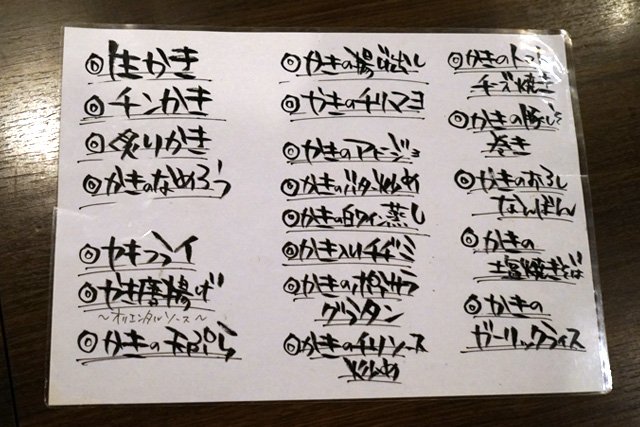 ◎生かき
◎チンかき
◎炙りかき
◎かきのなめろう
◎カキフライ
◎かき唐揚げ
～オリエンタルソース～
◎かきの天ぷら
◎かきの揚げ出し
◎かきのチリマヨ
◎かきのアヒージョ
◎かきのバター炒め
◎かきの白ワイン蒸し
◎かき入りチヂミ
◎かきのポテサラ
グラタン
◎かきのチリソース
炒め
◎かきのトマト
チーズ焼き
◎かきの豚バラ
巻き
◎かきのおろし
なんばん
◎かきの
塩焼きそば
◎かきの
ガーリックライス